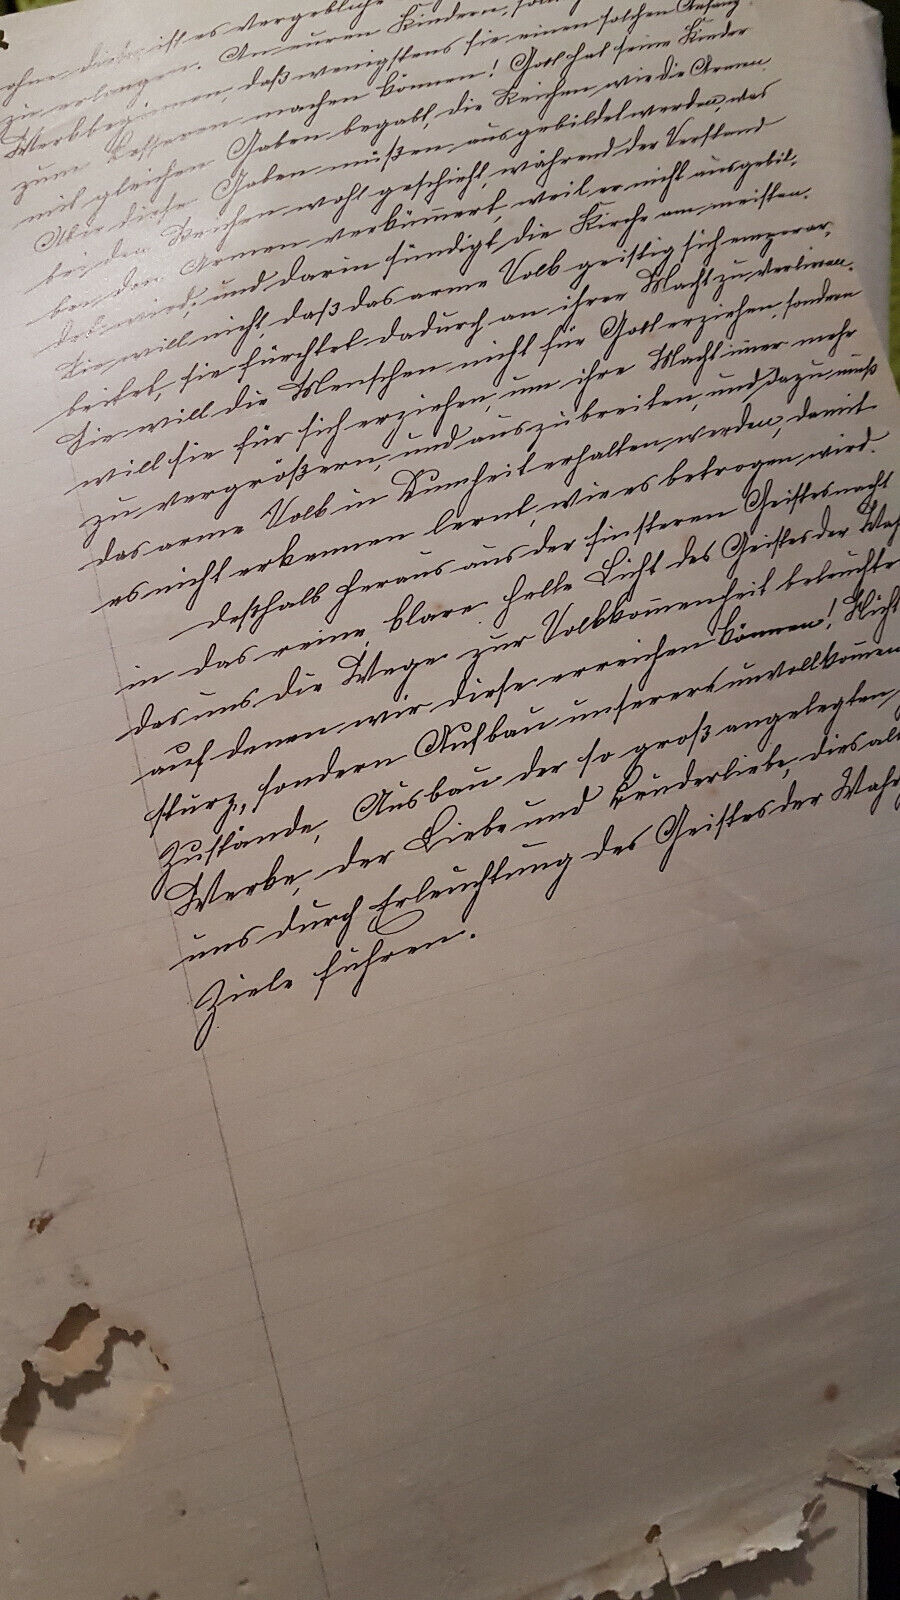 ohne diese ist es vergebliche
zu erlangen. An euren Kindern,
Werk beginnen, daß wenigstens sie einen solchen Anfang
zum Besseren machen können! Gott hat seine Kinder
mit gleichen Gaben begabt, die Reichen wie die Armen.
Aber diese Gaben müßen ausgebildet werden, was
bei den Reichen wohl geschieht, während der Verstand
bei den Armen verkümert, weil er nicht ausgebil-
det wird, und darin sündigt die Kirche am meisten.
Sie will nicht, daß das arme Volk geistig sich emporar-
beitet, sie fürchtet dadurch an ihrer Macht zu verlieren.
Sie will die Menschen nicht für Gott erziehen, sondern
will sie für sich erziehen, um ihre Macht imer mehr
zu vergrößern, und auszubreiten, und dazu muß
das arme Volk in Dumheit erhalten werden, damit
es nicht erkennen lernt, wie es betrogen wird.
Deßhalb heraus aus der finsteren Geistesnacht
in das reine, klare, helle Licht des Geistes der Wah
das uns die Wege zur Vollkomenheit beleuchte
auf denen wir diese erreichen können! Nicht
sturz, sondern Aufbau unserer unvollkomen
Zustände, Ausbau der so groß angelegten
Werke, der Liebe und Bruderliebe, dies al
uns durch Erleuchtung des Geistes der Wahr
Ziele führen.